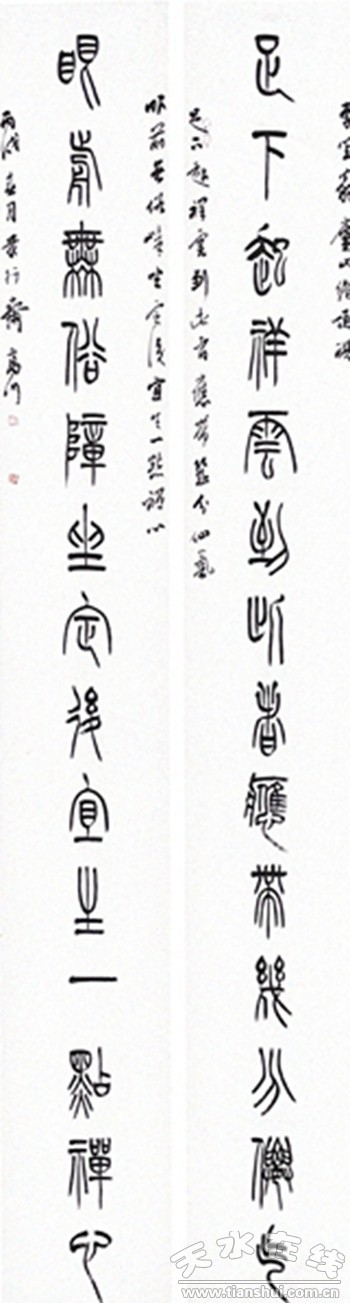 足下起祥雲到此者應帶幾分僊气
足下起祥雲到此者應帶幾分仙氣
眼前无俗障坐定後宜生一點禪心
眼前無俗障坐定後宜生一點禪心
丙戌春月
天水在线
www.tianshui.com.cn